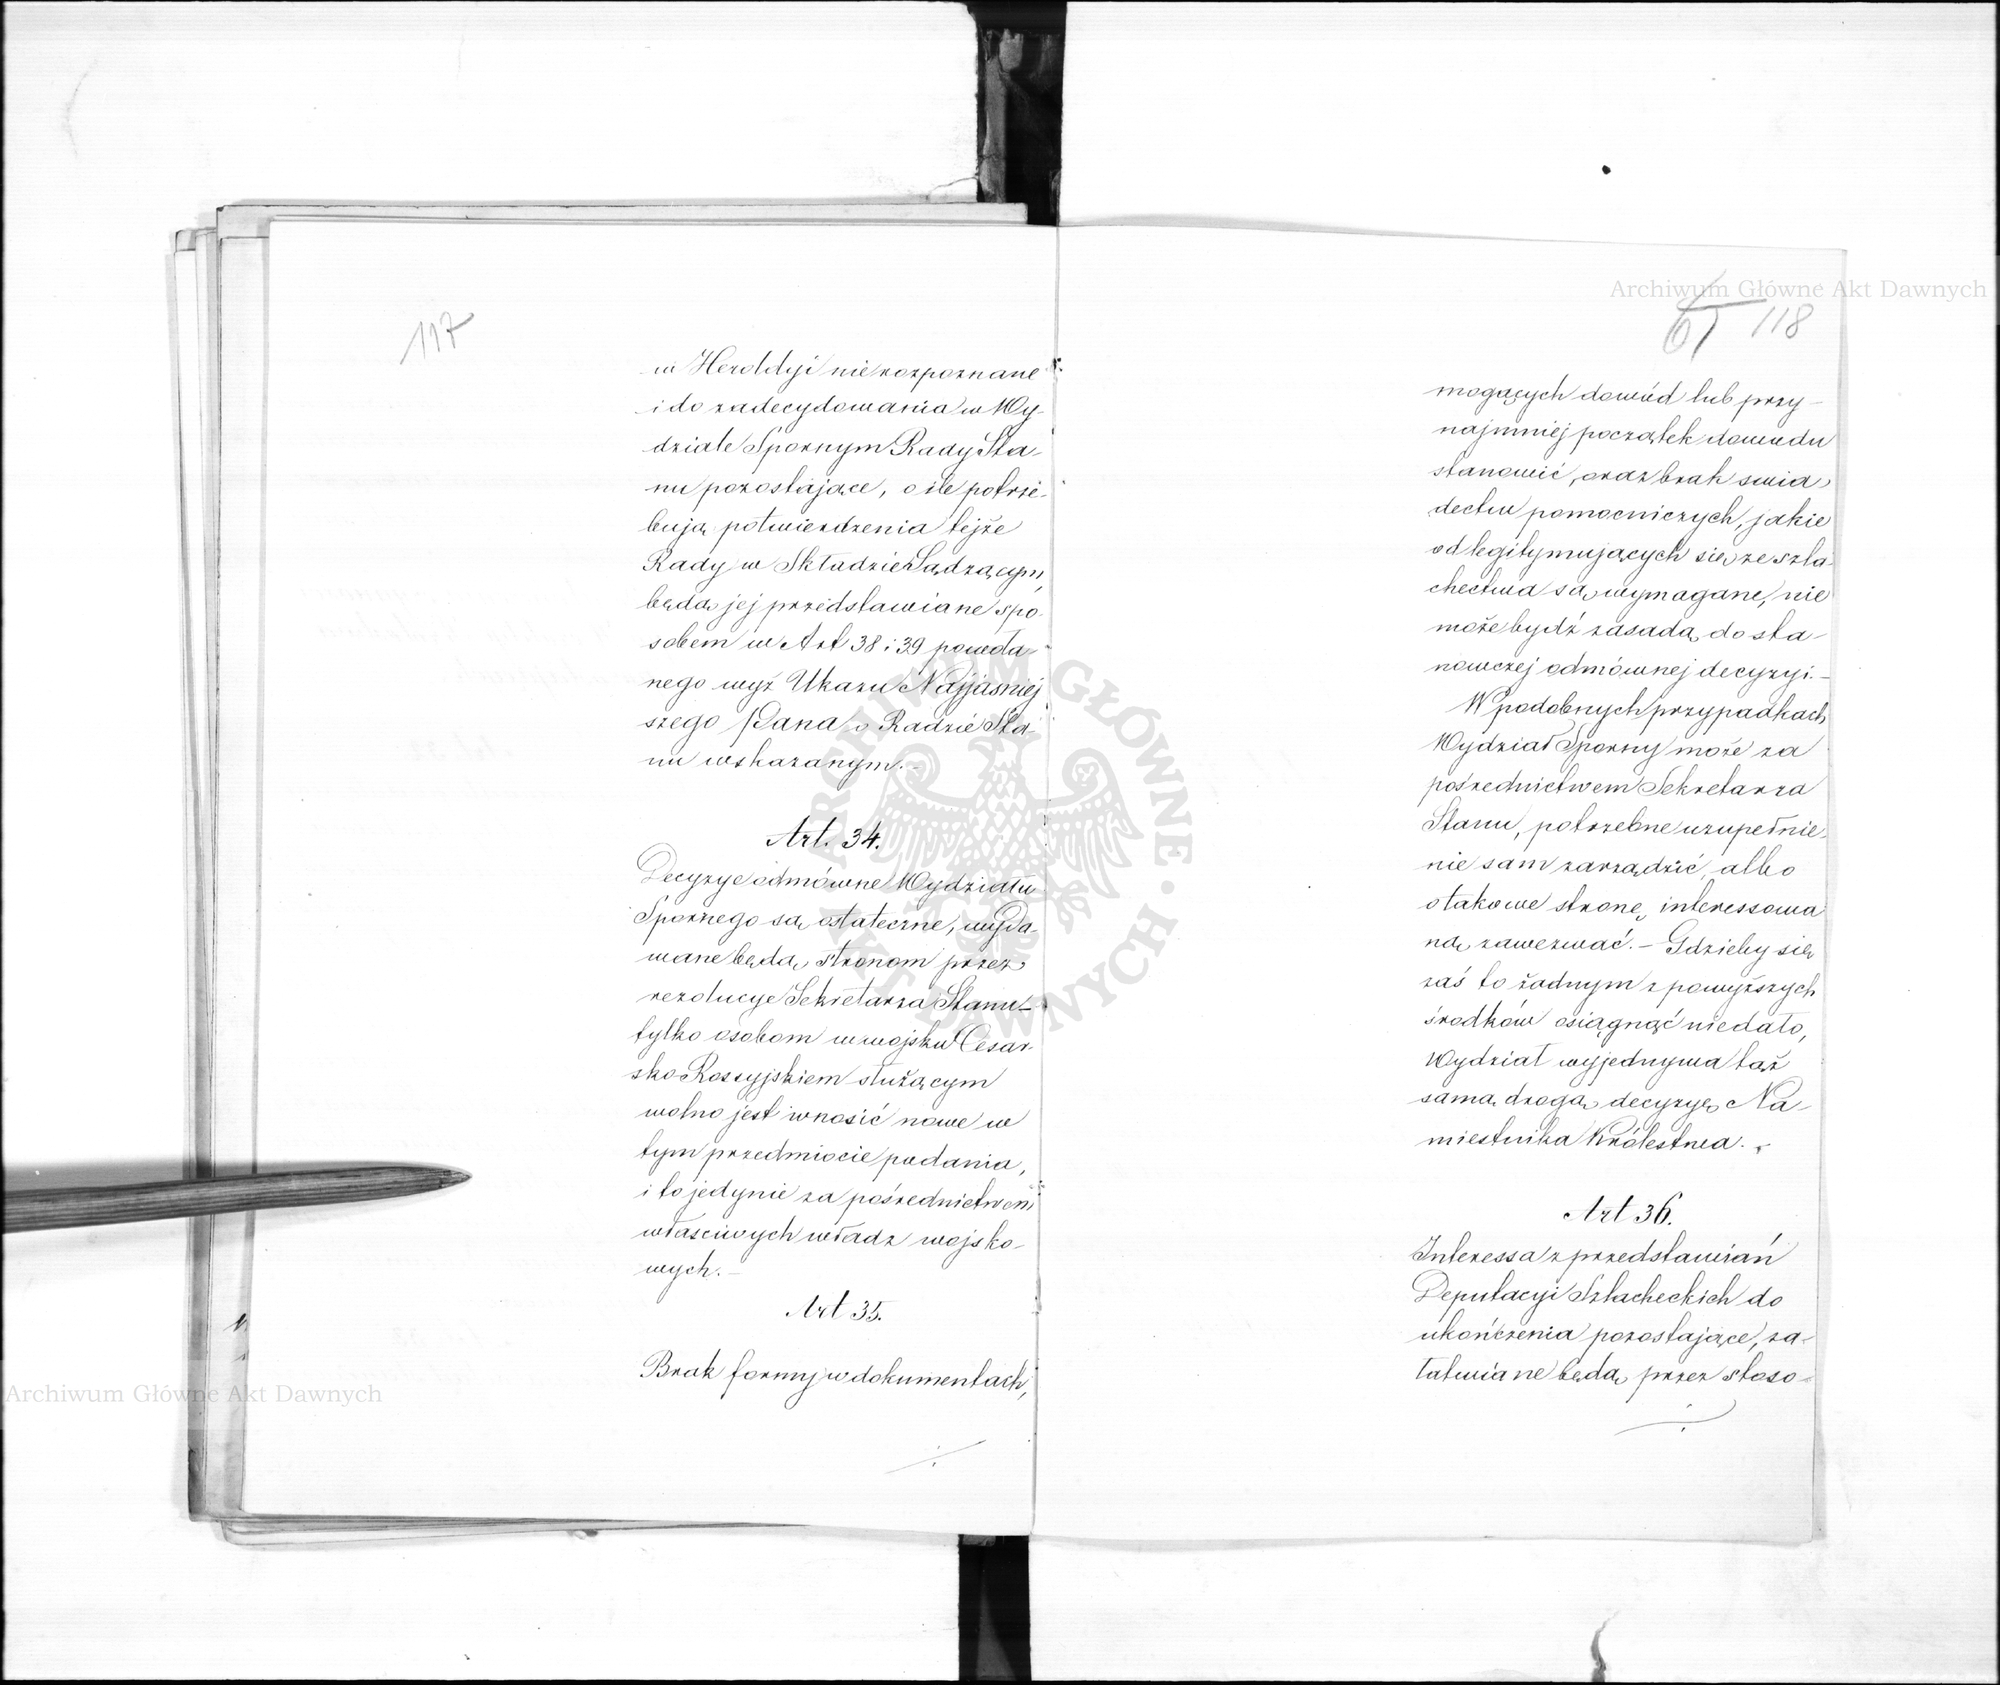 117
w Heroldyi nierozpoznane
i do zadecydowania w Wy-
dziale Spornym Rady Sta-
nu pozostające, o ile potrze-
bują potwierdzenia tejże
Rady w Składzie Sądzącym,
będą jej przedstawiane spo-
sobem w Art 38 i 39 powoła-
nego wyż Ukazu Najjaśniej
szego Pana o Radzie Sta-
nu wskazanym. -
Art. 34.
Decyzye odmówne Wydziału
Spornego są ostateczne, wyda-
wane będą stronom przez
rezolucye Sekretarza Stanu -
tylko osobom w wojsku Cesar-
sko Rossyjskiem służącym
wolno jest wnosić nowe w
tym przedmiocie podania,
i to jedynie za pośrednictwem
właściwych władz wojsko-
wych. -
Art 35.
Brak formy w dokumentach,
118
mogących dowód lub przy-
najmniej początek dowodu
stanowić, oraz brak świa-
dectw pomocniczych, jakie
od legitymujących się ze szla-
chectwa są wymagane, nie
może bydź zasadą do sta-
nowczej odmównej decyzyi. -
W podobnych przypadkach
Wydział Sporny może za
pośrednictwem Sekretarza
Stanu, potrzebne uzupełnie-
nie sam zarządzić, albo
o takowe stronę interessowa
ną zawezwać. - Gdzieby się
zaś to żadnym z powyższych
środków osiągnąć niedało,
Wydział wyjednywa taż
samą drogą decyzyę Na-
miestnika Królestwa. -
Art 36.
Interessa z przedstawiań
Deputacyi Szlacheckich do
ukończenia pozostające, za-
łatwiane będą przez stoso-
Archiwum Główne Akt Dawnych
Archiwum Główne Akt Dawnych
ARCHIWUM GŁÓWNE AKT DAWNYCH · W WARSZAWIE ·